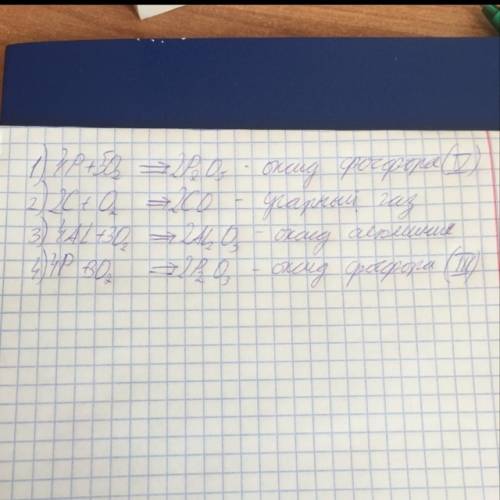 1) 4P+5O₂ ⇒ 2P₂O₅ - оксид фосфора (V)
2) 2C + O₂ ⇒ 2CO - угарный газ
3) 4Al+3O₂ ⇒ 2Al₂O₃ - оксид алюминия
4) 4P +3O₂ ⇒ 2P₂O₃ - оксид фосфора (III)